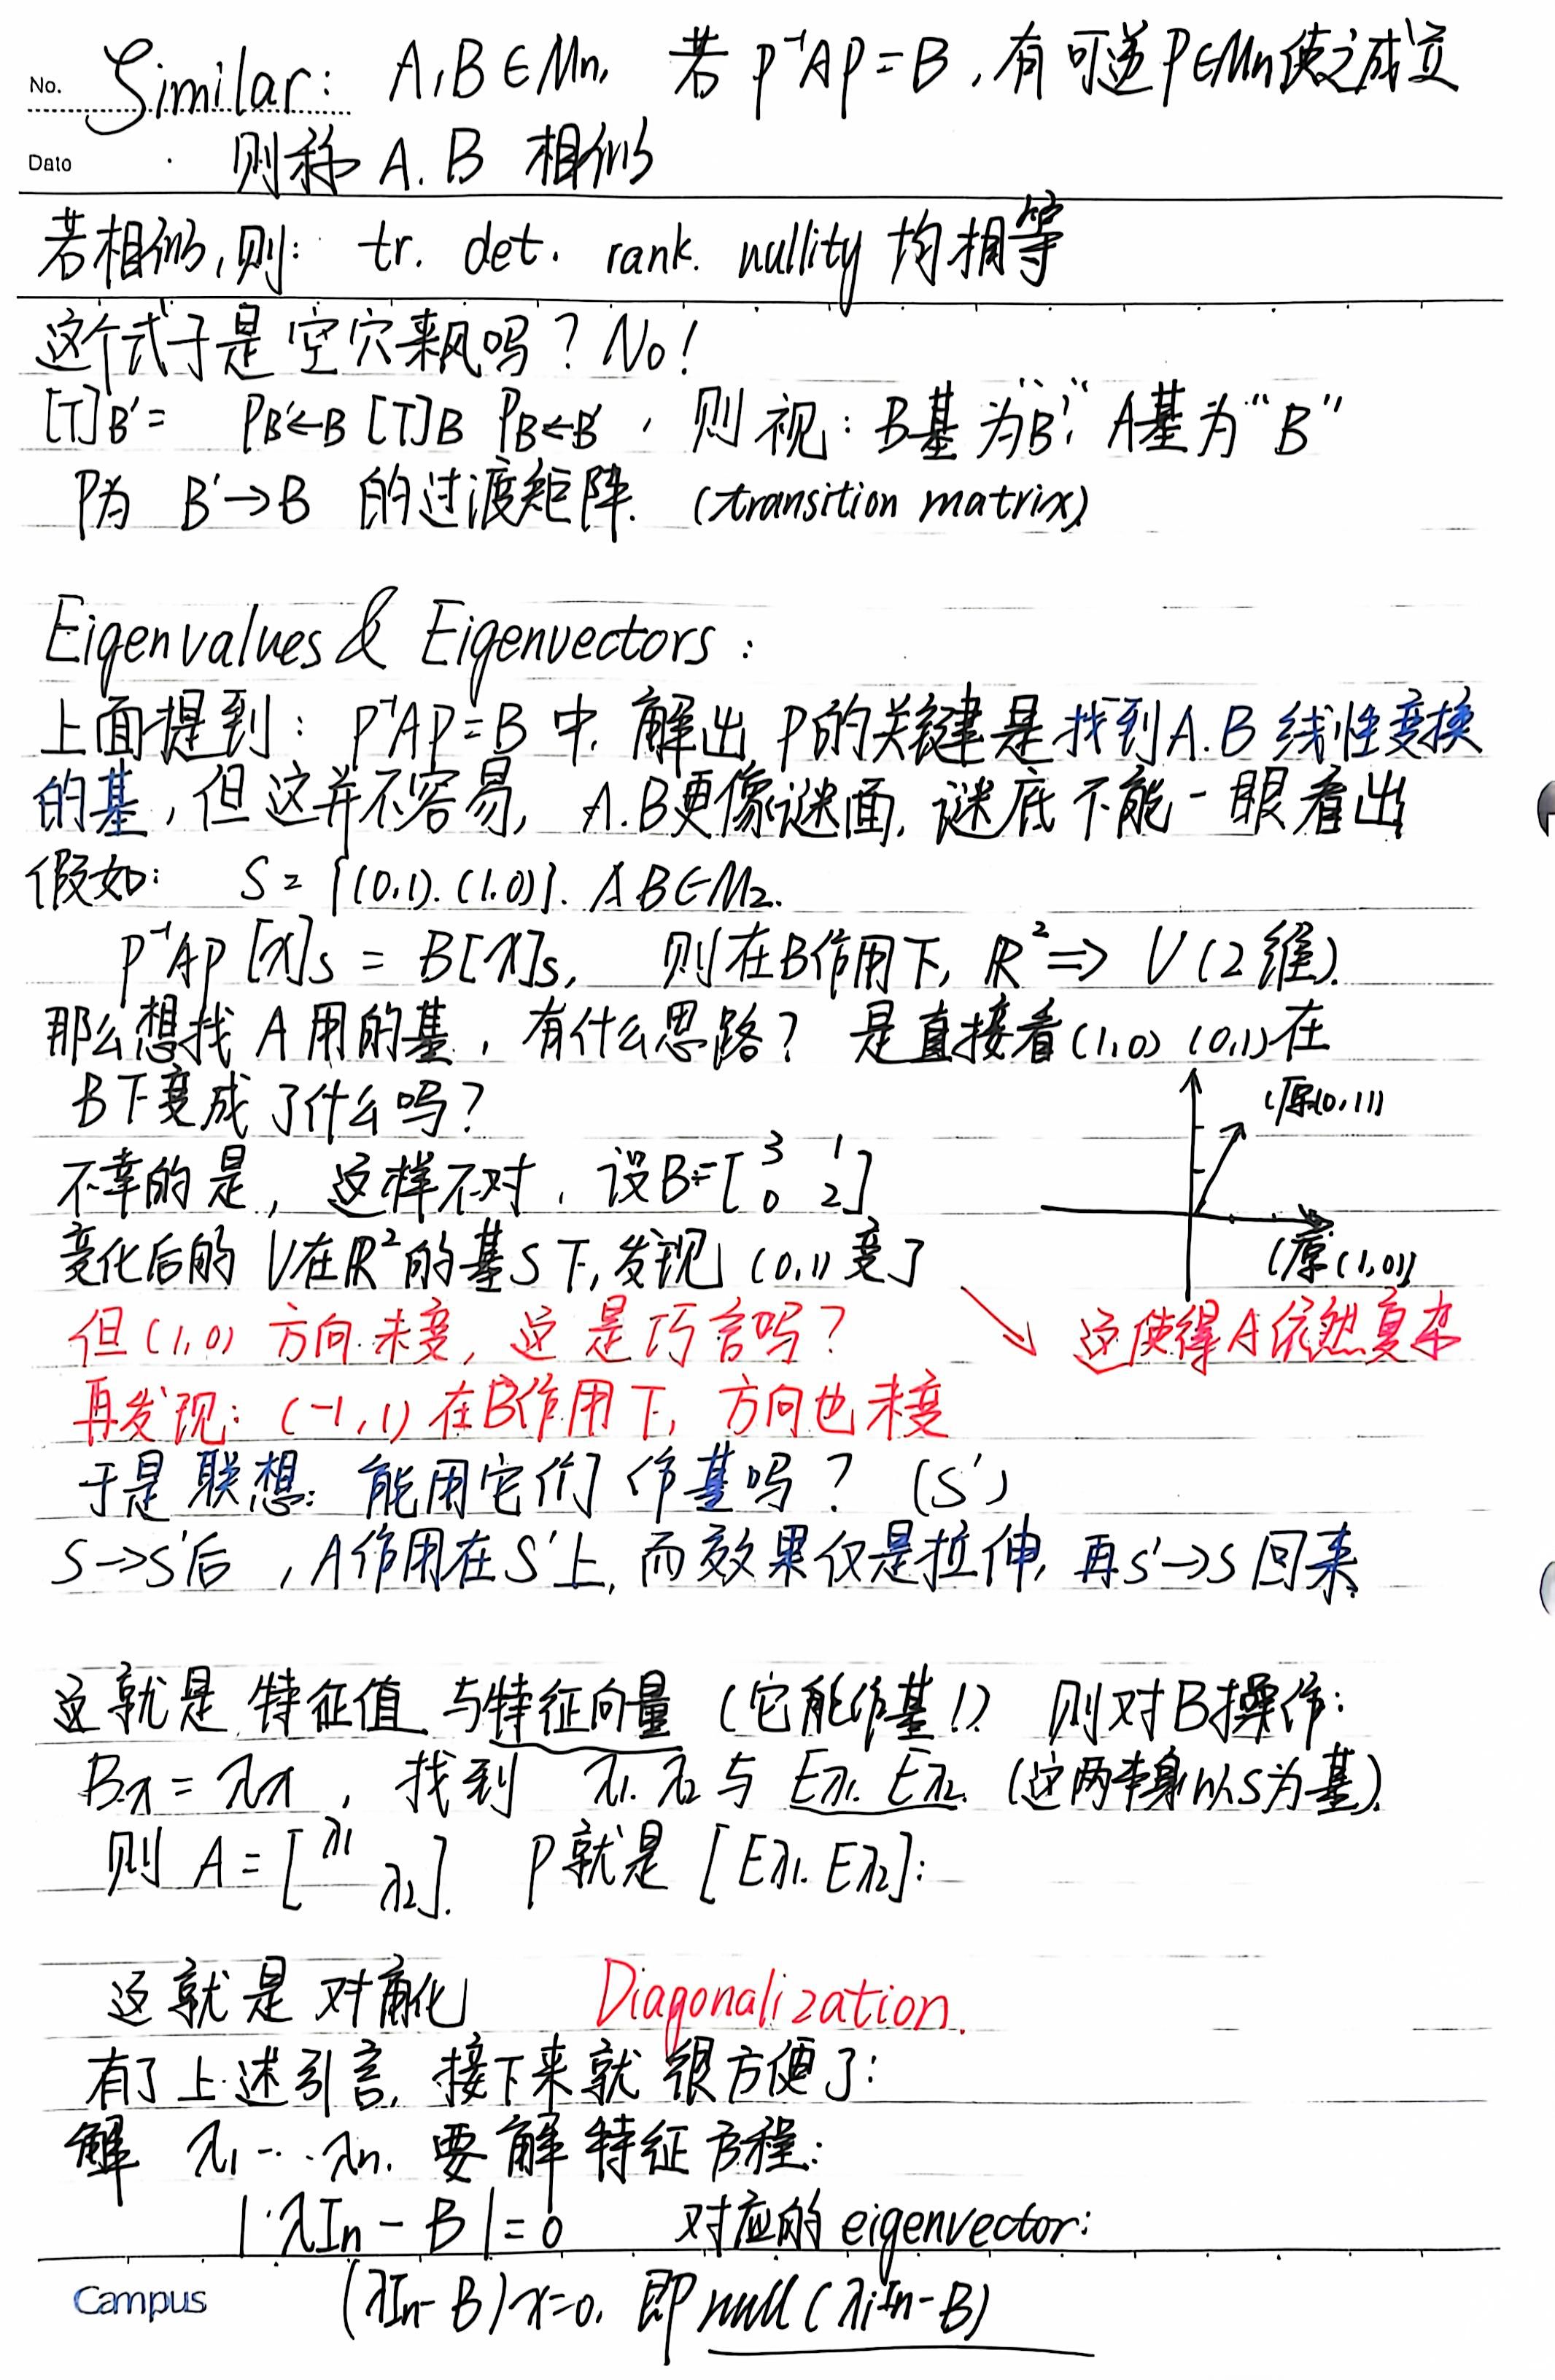 No. Similar: A,B∈Mn, 若 P⁻¹AP=B, 有可逆P∈Mn使之成立
Date 则称 A.B 相似
若相似,则: tr. det. rank. nullity 均相等
这个式子是空穴来风吗? No!
[T]B'= PB'←B [T]B PB←B', 则视: B基为"B'", A基为"B"
P为 B'→B 的过渡矩阵. (transition matrix)
Eigenvalues & Eigenvectors:
上面提到: P⁻¹AP=B 中, 解出 P的关键是找到A.B 线性变换
的基, 但这并不容易, A.B更像谜面, 谜底不能一眼看出
假如: S = {(0,1).(1,0)}. A.B∈M2.
P⁻¹AP [x]s = B[x]s, 则在B作用下, R² ⇒ V (2维).
那么想找 A用的基, 有什么思路? 是直接看(1,0) (0,1)在
B下变成了什么吗?
(原(0,1))
不幸的是, 这样不对, 设B=[3 1
0 2]
变化后的 V在R²的基S下,发现 (0,1)变了
(原(1,0))
但(1,0) 方向未变, 这是巧合吗? 这使得A依然复杂
再发现: (-1,1)在B作用下, 方向也未变
于是联想: 能用它们作基吗? (S')
S→S'后, A作用在S'上, 而效果仅是拉伸, 再S'→S回来.
这就是特征值与特征向量 (它能作基!) 则对B操作:
Bx = λx, 找到 λ1.λ2 与 Eλ1. Eλ2. (这两本身以S为基).
则 A = [λ1
λ2]. P就是 [Eλ1. Eλ2]:
这就是对角化 Diagonalization.
有了上述引言, 接下来就很方便了:
解 λ1-··λn. 要解特征方程:
|λIn - B|=0 对应的 eigenvector:
Campus (λIn-B)x=0. 即 null(λiIn-B)